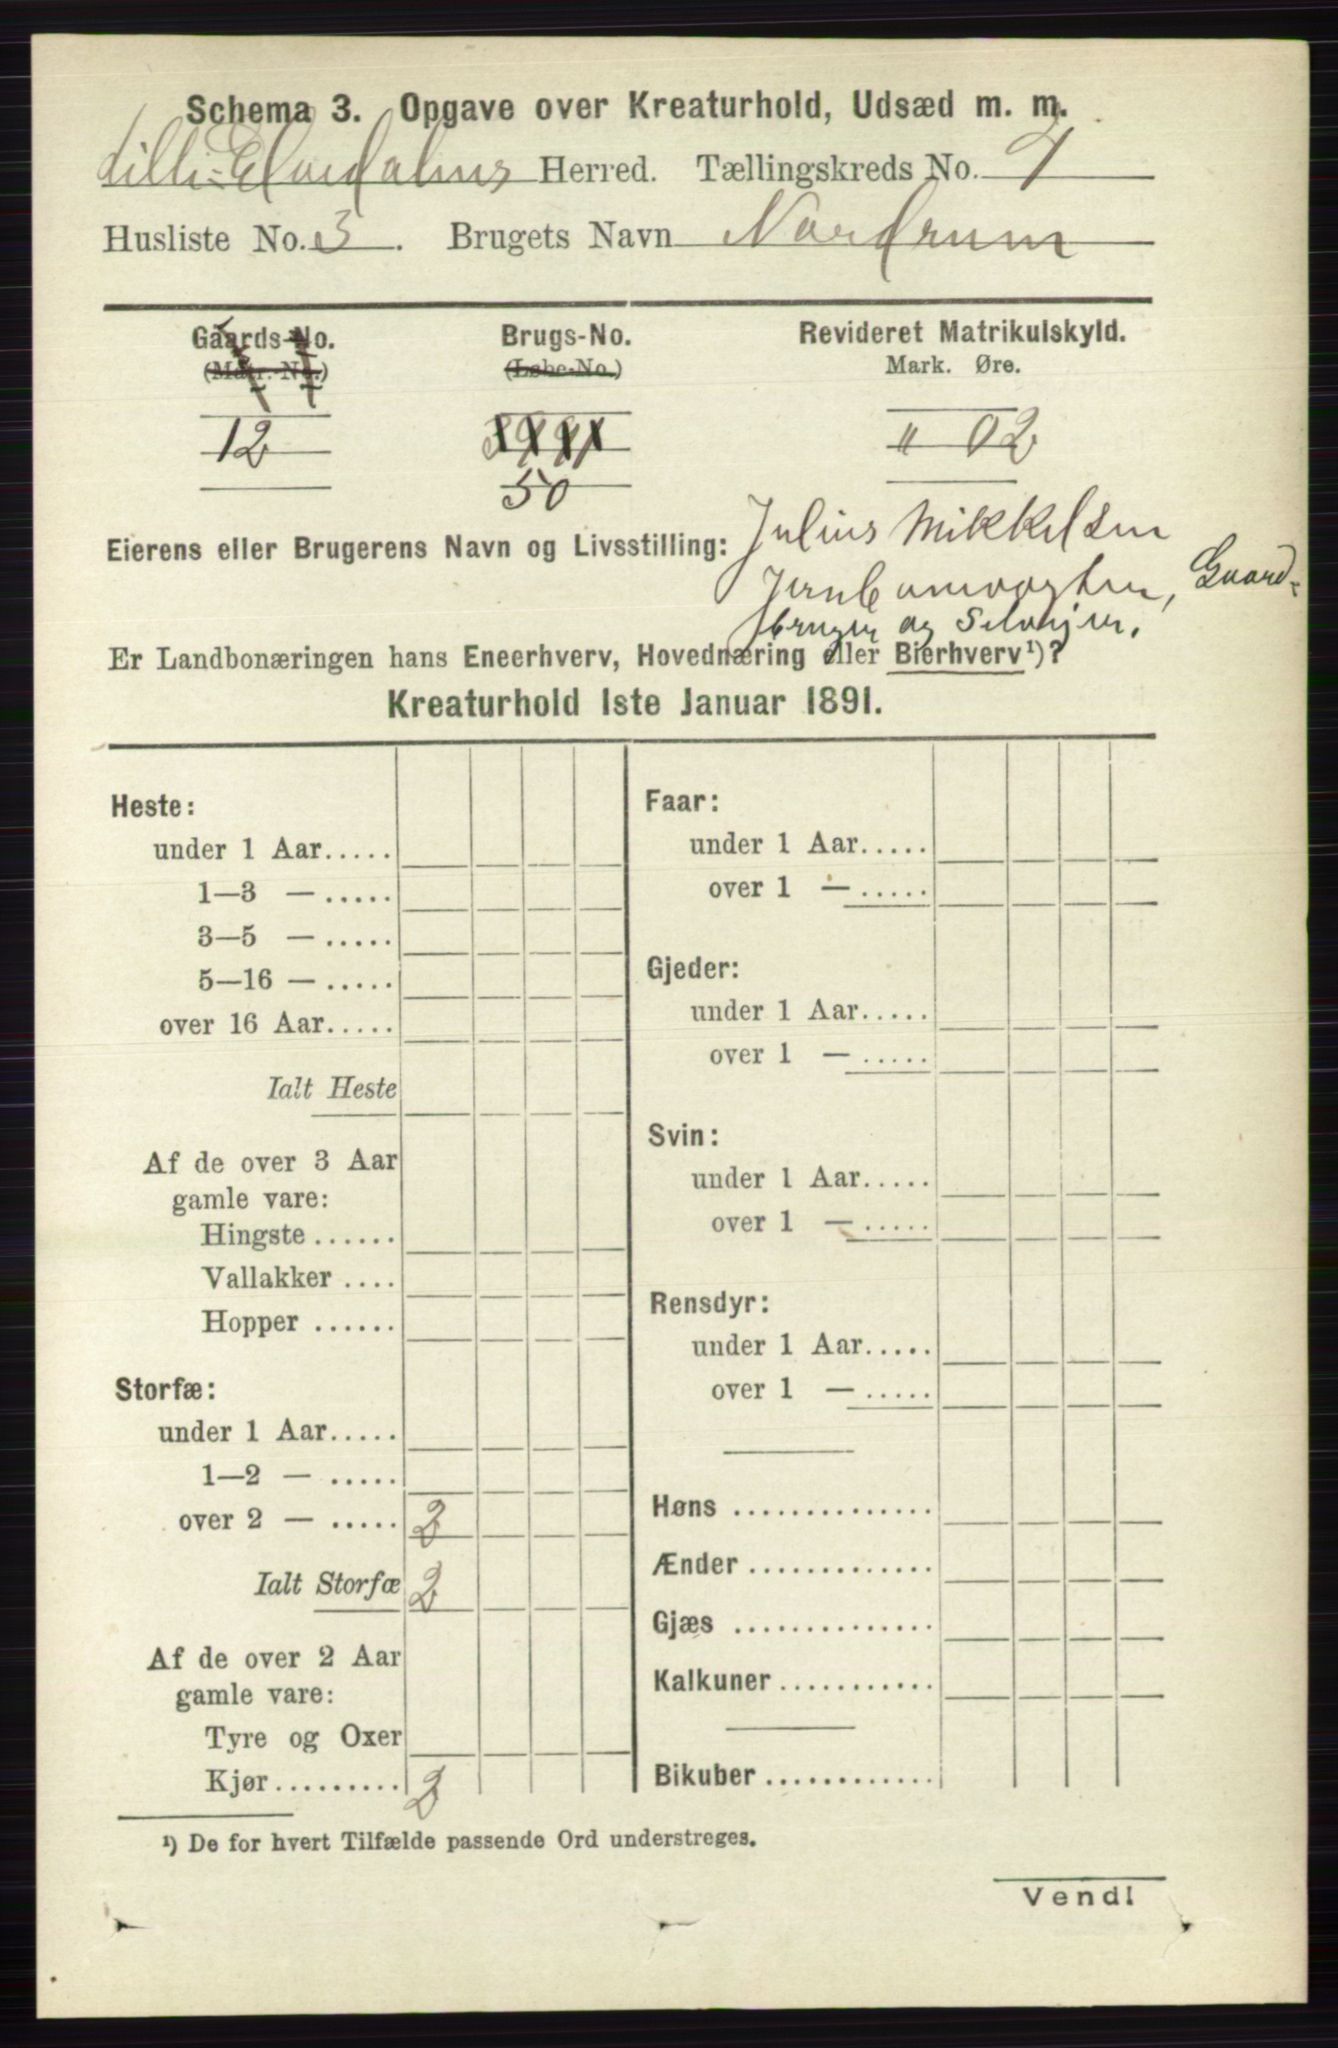 Schema 3. Opgave over Kreaturhold, Udsæd m. m.
Lille-Elvedalens Herred. Tællingskreds No. 7
Husliste No. 3. Brugets Navn Nordrum
Gaards-No. Brugs-No. Revideret Matrikulskyld.
(Matr.-No.) (Løbe-No.) Mark. Øre.
12 " 02
50
Eierens eller Brugerens Navn og Livsstilling: Julius Mikkelsen
Jernbanevogter, Gaard-
bruger og Selveier.
Er Landbonæringen hans Eneerhverv, Hovednæring eller Bierhverv¹)?
Kreaturhold 1ste Januar 1891.
Heste:
under 1 Aar.....
1—3 — .....
3—5 — .....
5—16 — .....
over 16 Aar.....
Ialt Heste
Af de over 3 Aar
gamle vare:
Hingste ......
Vallakker ....
Hopper ......
Storfæ:
under 1 Aar.....
1—2 — .....
over 2 — ..... 2
Ialt Storfæ 2
Af de over 2 Aar
gamle vare:
Tyre og Oxer
Kjør ......... 2
Faar:
under 1 Aar.....
over 1 — .....
Gjeder:
under 1 Aar.....
over 1 — .....
Svin:
under 1 Aar.....
over 1 — .....
Rensdyr:
under 1 Aar.....
over 1 — .....
Høns ..............
Ænder .............
Gjæs ..............
Kalkuner ...........
Bikuber ............
¹) De for hvert Tilfælde passende Ord understreges.
Vend!